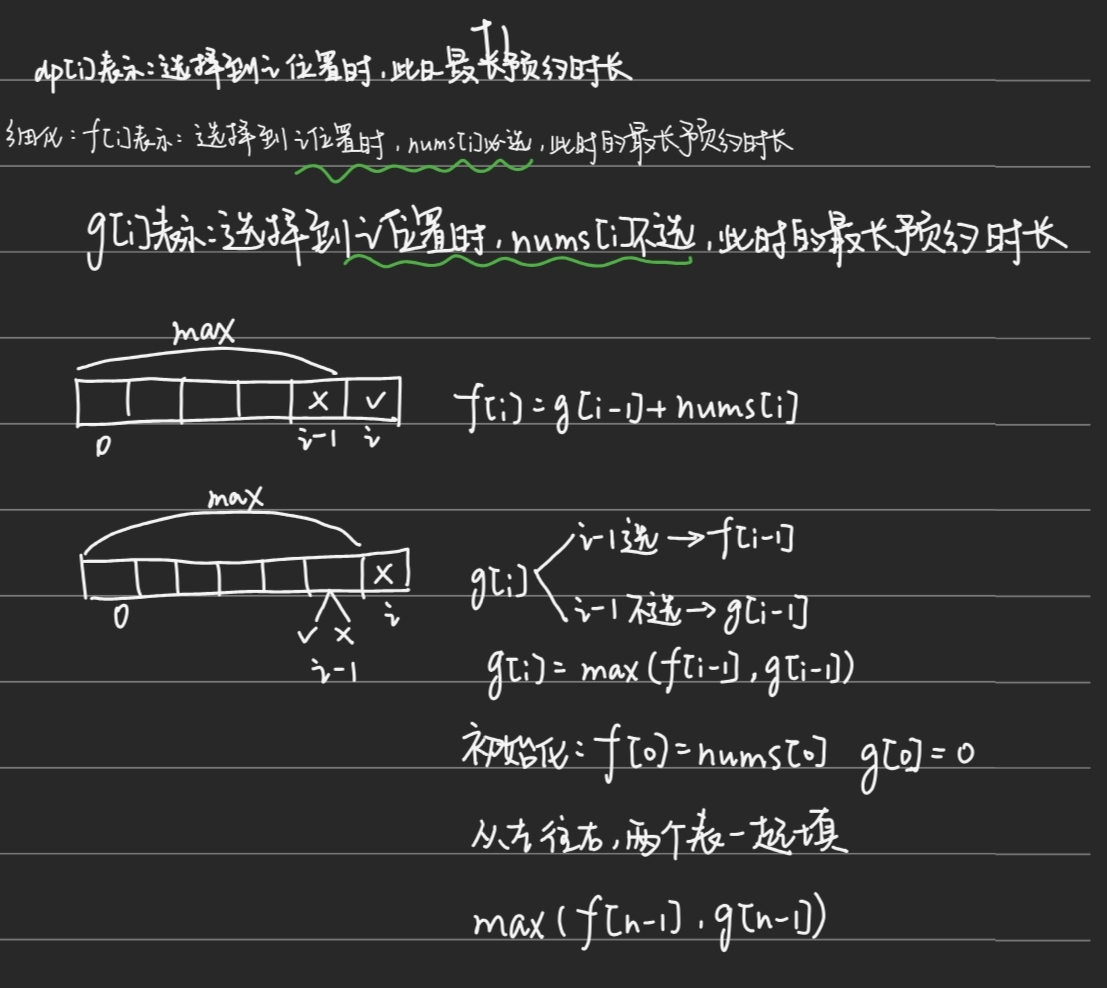 dp[i]表示:选择到i位置时,此时最长预约时长
细化:f[i]表示:选择到i位置时,nums[i]必选,此时的最长预约时长
g[i]表示:选择到i位置时,nums[i]不选,此时的最长预约时长
max
x ✓
0 i-1 i
f[i]=g[i-1]+nums[i]
max
x
0 ✓ x i
i-1
g[i]
i-1选→f[i-1]
i-1不选→g[i-1]
g[i]=max(f[i-1],g[i-1])
初始化:f[0]=nums[0] g[0]=0
从左往右,两个表一起填
max(f[n-1],g[n-1])